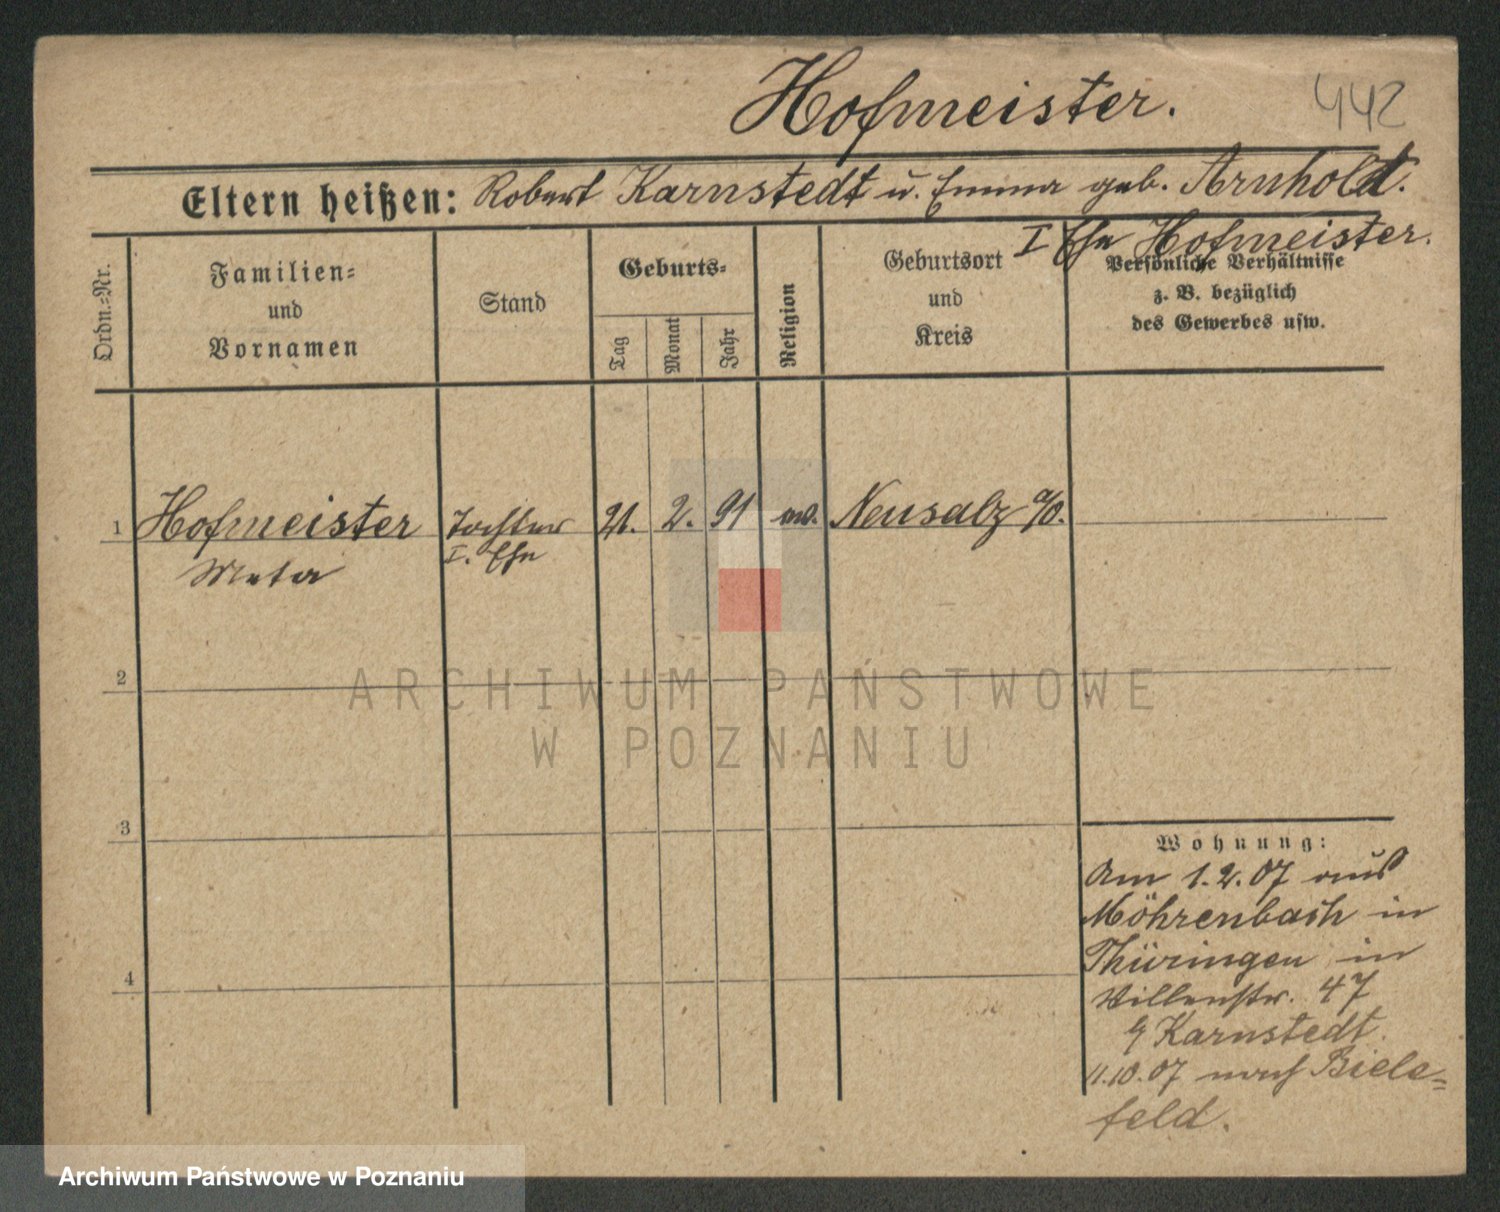 Hofmeister.
442
Eltern heißen: Robert Karnstedt u. Emma geb. Arnhold.
I Ehe Hofmeister.
Ordn.-Nr.
Familien-
und
Vornamen
Stand
Geburts-
Tag
Monat
Jahr
Religion
Geburtsort
und
Kreis
Persönliche Verhältnisse
z. B. bezüglich
des Gewerbes usw.
1 Hofmeister Tochter 21. 2. 91 ev. Neusalz a/O.
Meta I. Ehe
2
ARCHIWUM PAŃSTWOWE
W POZNANIU
3
Wohnung:
Am 1.2.07 aus
Möhrenbach in
Thüringen in
47
Karnstedt
11.10.07 nach Biele-
feld.
4
Archiwum Państwowe w Poznaniu